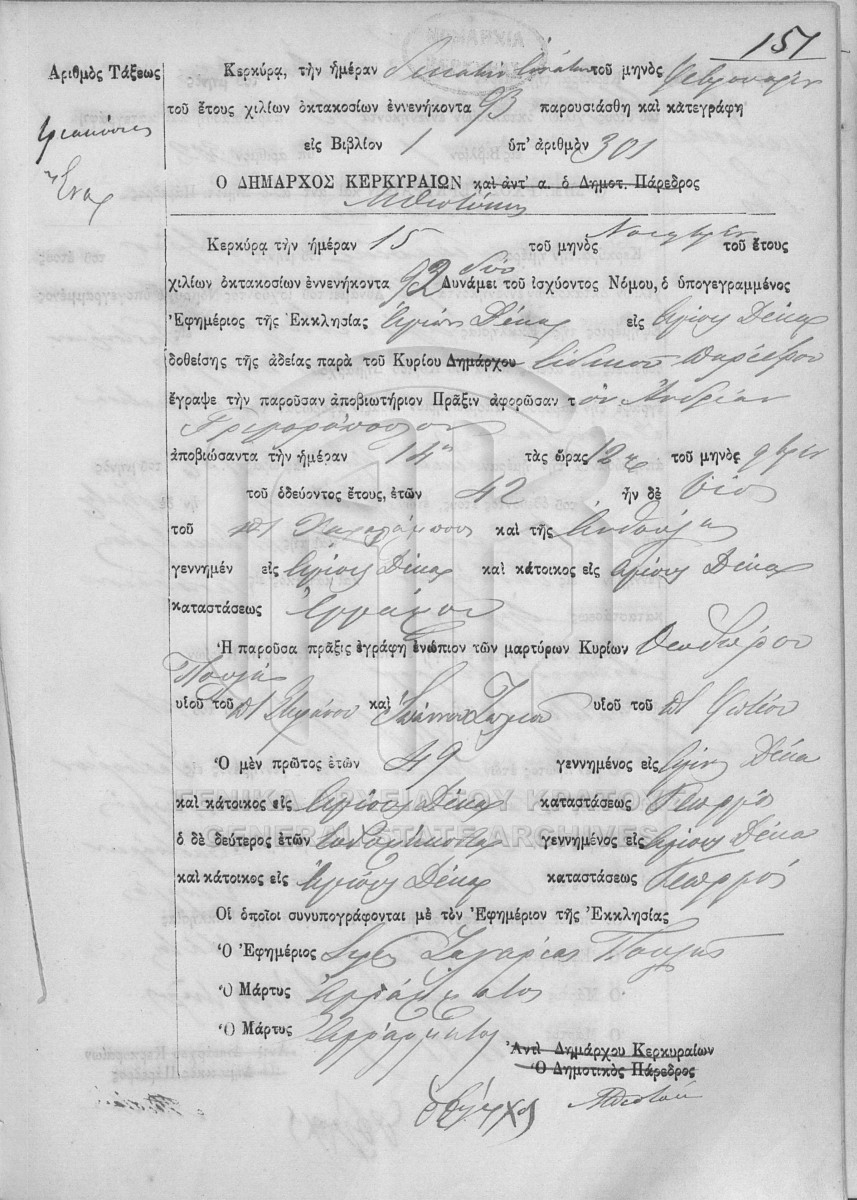 151
Ἀριθμὸς Τάξεως
τριακόσια
Ἕνα
Κερκύρα, τὴν ἡμέραν δεκάτην ἐνάτην τοῦ μηνὸς Φεβρουαρίου
τοῦ ἔτους χιλίων ὀκτακοσίων ἐννενήκοντα 93 παρουσιάσθη καὶ κατεγράφη
εἰς Βιβλίον 1 ὑπ' ἀριθμὸν 301
Ο ΔΗΜΑΡΧΟΣ ΚΕΡΚΥΡΑΙΩΝ καὶ ἀντ' α. ὁ Δημοτ. Πάρεδρος
Κερκύρα τὴν ἡμέραν 15 τοῦ μηνὸς Νοεμβρίου τοῦ ἔτους
χιλίων ὀκτακοσίων ἐννενήκοντα 92 δύο Δυνάμει τοῦ ἰσχύοντος Νόμου, ὁ ὑπογεγραμμένος
Ἐφημέριος τῆς Ἐκκλησίας Ἁγίων Δέκα εἰς Ἁγίους Δέκα
δοθείσης τῆς ἀδείας παρὰ τοῦ Κυρίου Δημάρχου εἰδικοῦ παρέδρου
ἔγραψε τὴν παροῦσαν ἀποβιωτήριον Πρᾶξιν ἀφορῶσαν τον Ἀνδρέαν
Γρηγορόπουλον
ἀποβιώσαντα τὴν ἡμέραν 14ην τὰς ὥρας 12 τοῦ μηνὸς 9βρίου
τοῦ ὁδεύοντος ἔτους, ἐτῶν 42 ἦν δὲ υἱὸς
τοῦ π. Χαραλάμπους καὶ τῆς
γεννημέν εἰς Ἁγίους Δέκα καὶ κάτοικος εἰς Ἁγίους Δέκα
καταστάσεως
Ἡ παροῦσα πρᾶξις ἐγράφη ἐνώπιον τῶν μαρτύρων Κυρίων Θεοδώρου
Πουλῆ
υἱοῦ τοῦ π. Στεφάνου καὶ Ἰωάννου υἱοῦ τοῦ π. Φωτίου
Ὁ μὲν πρῶτος ἐτῶν 49 γεννημένος εἰς Ἁγίους Δέκα
καὶ κάτοικος εἰς Ἁγίους Δέκα καταστάσεως Γεωργός
ὁ δὲ δεύτερος ἐτῶν ἑβδομήκοντα γεννημένος εἰς Ἁγίους Δέκα
καὶ κάτοικος εἰς Ἁγίους Δέκα καταστάσεως Γεωργός
Οἱ ὁποῖοι συνυπογράφονται μὲ τὸν Ἐφημέριον τῆς Ἐκκλησίας
Ὁ Ἐφημέριος Ζαχαρίας Πουλῆς
Ὁ Μάρτυς ἀγράμματος
Ὁ Μάρτυς ἀγράμματος
Ἀντὶ Δημάρχου Κερκυραίων
Ὁ Δημοτικὸς Πάρεδρος
ΓΕΝΙΚΑ ΑΡΧΕΙΑ ΤΟΥ ΚΡΑΤΟΥΣ
GENERAL STATE ARCHIVES